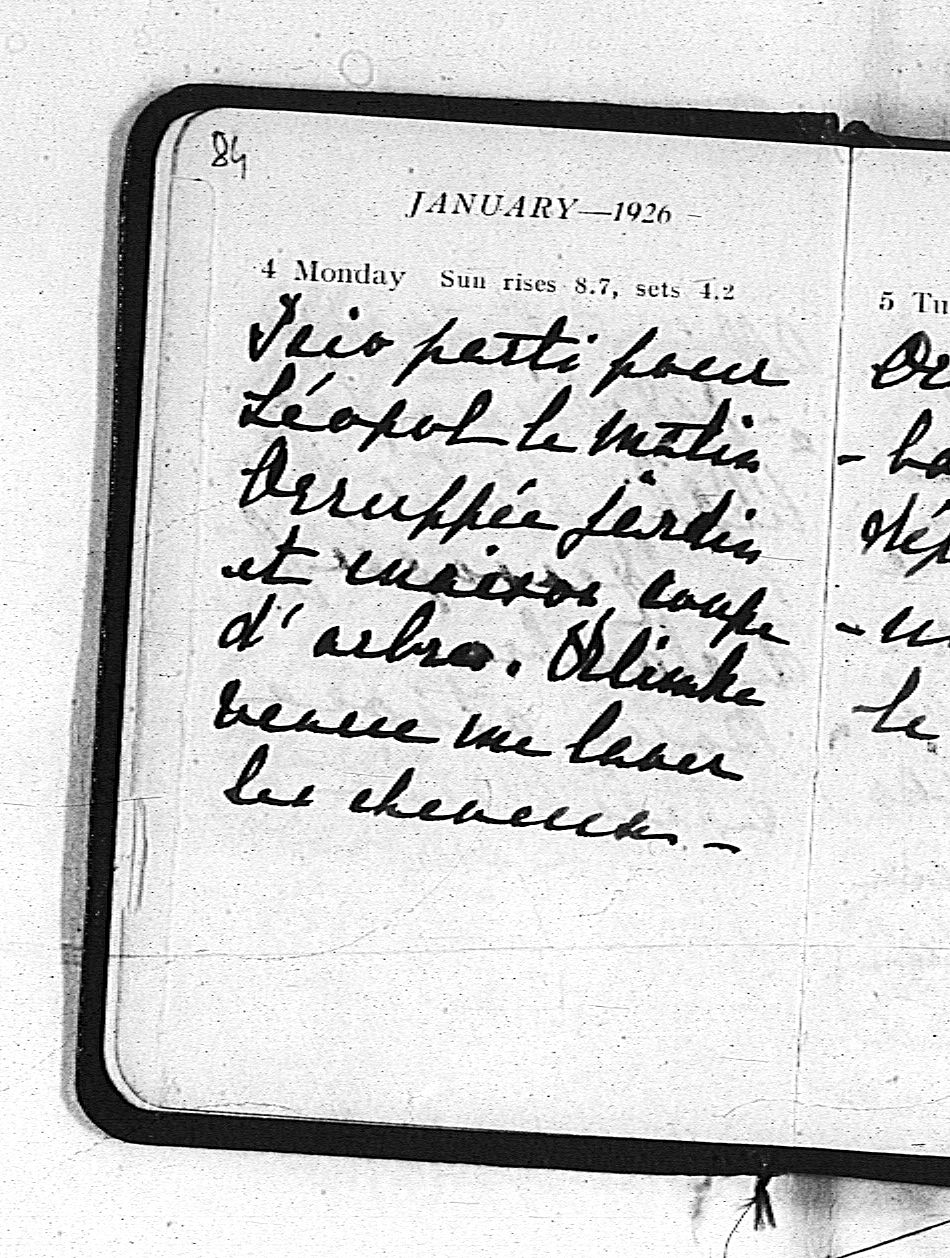 84
JANUARY—1926 –
4 Monday Sun rises 8.7, sets 4.2
parti pour
Léopol le matin
jardin
et maison, coupe
d'arbre.
venue me laver
les cheveux –
5 Tu
De
– ba
dép
le